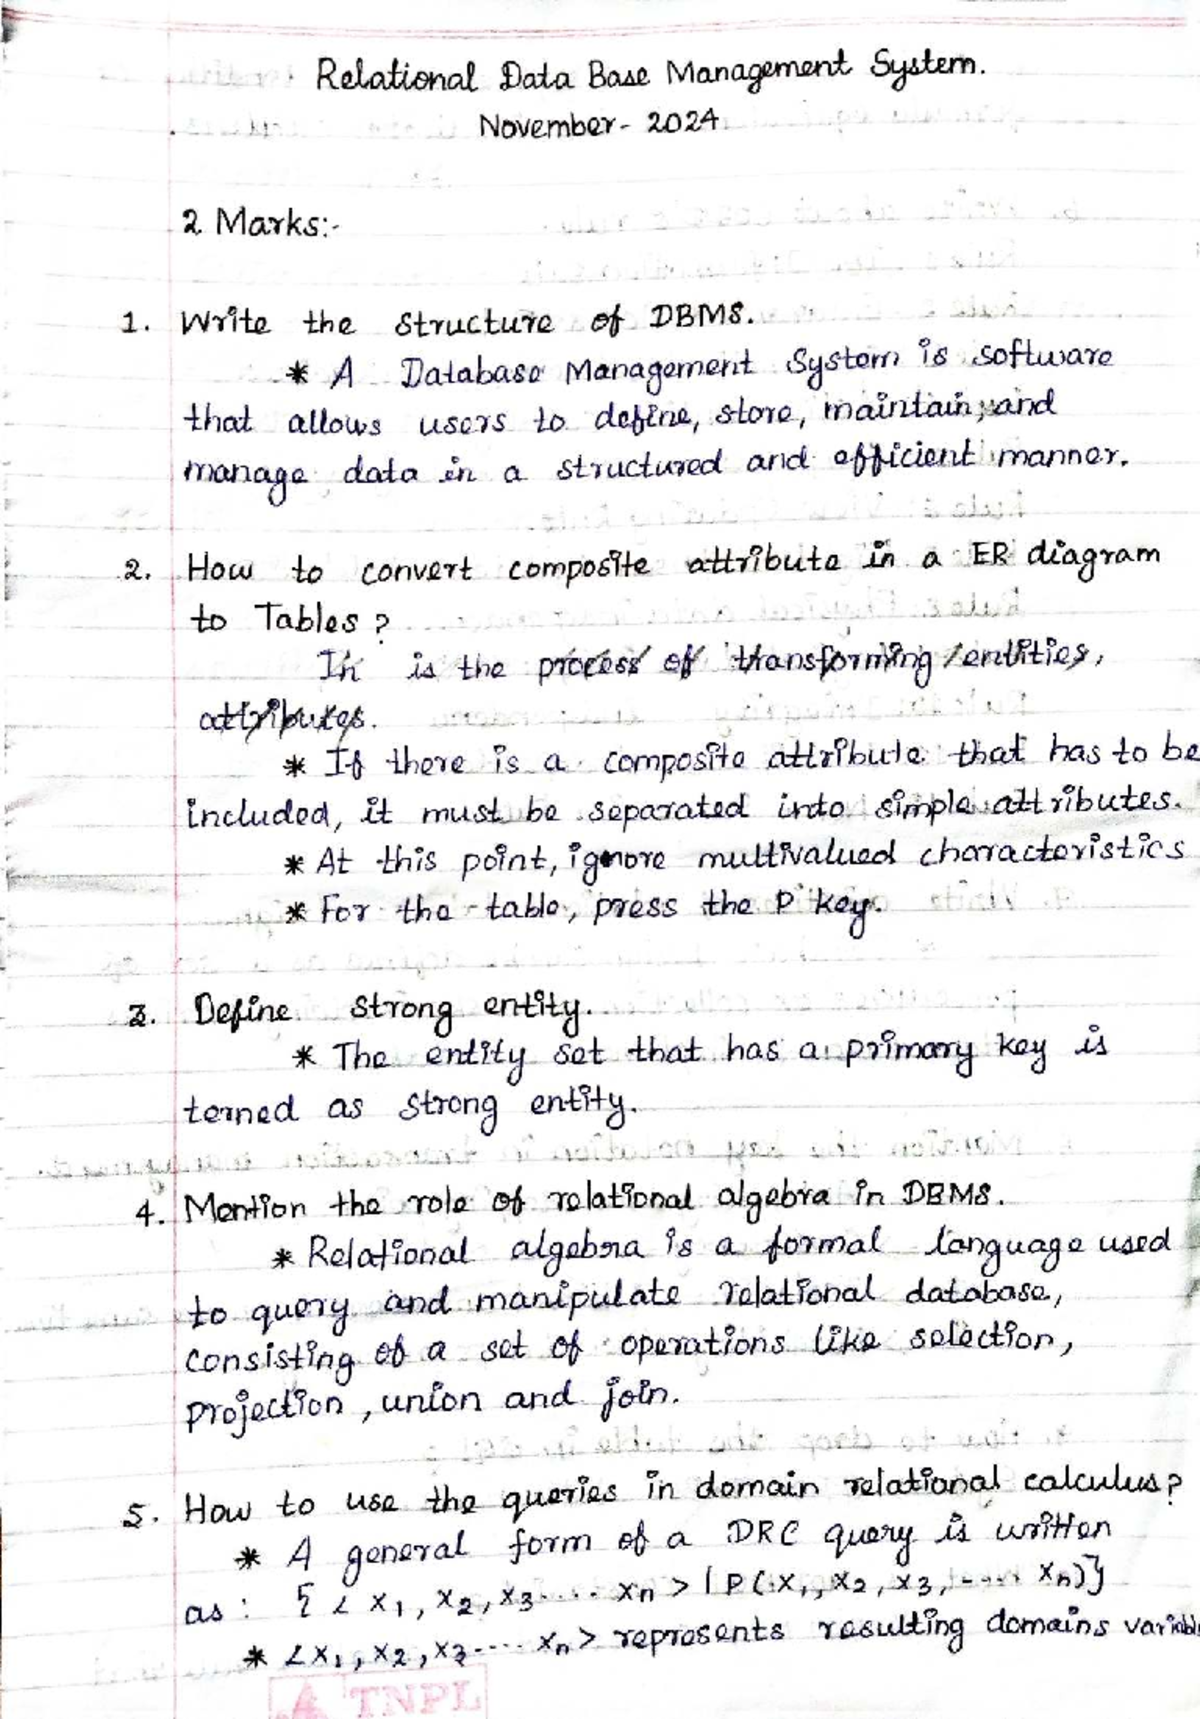 Relational Data Base Management System.
November- 2024
2 Marks:-
1. Write the structure of DBMS.
* A Database Management System is software
that allows users to define, store, maintain, and
manage data in a structured and efficient manner.
2. How to convert composite attribute in a ER diagram
to Tables?
In is the process of transforming entities,
attributes.
* If there is a composite attribute that has to be
included, it must be separated into simple attributes.
* At this point, ignore multivalued characteristics
* For the table, press the P key.
3. Define strong entity.
* The entity set that has a primary key is
termed as strong entity.
4. Mention the role of relational algebra in DBMS.
* Relational algebra is a formal language used
to query and manipulate relational database,
consisting of a set of operations like selection,
projection, union and join.
5. How to use the queries in domain relational calculus?
* A general form of a DRC query is written
as: { < x1, x2, x3.... xn > | P (x1, x2, x3, .... xn)}
* <x1, x2, x3.... xn> represents resulting domains variable
TNPL